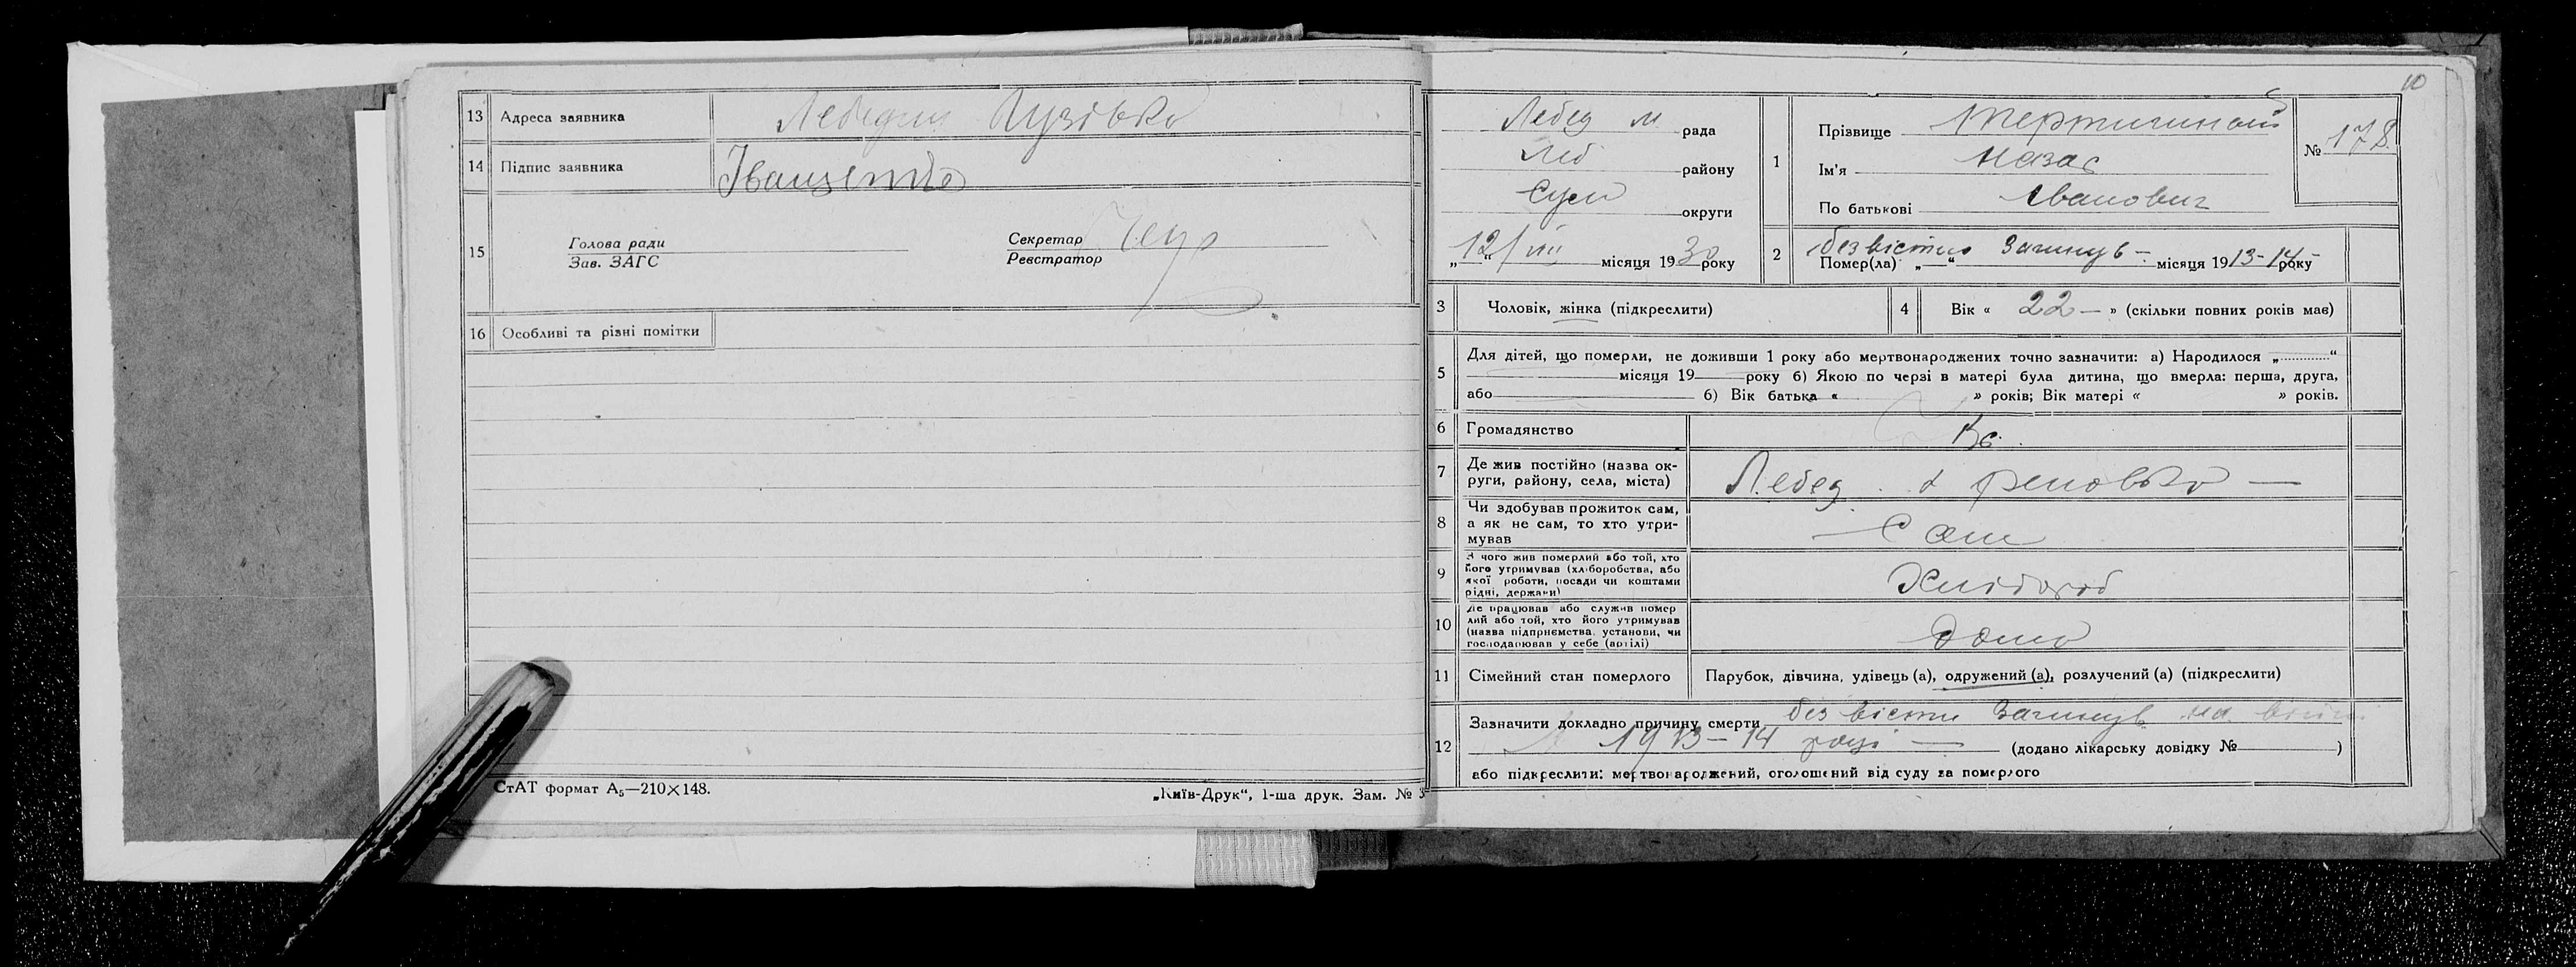 13 Адреса заявника Лебедин Пузівка
14 Підпис заявника Іващенко
15 Голова ради
Зав. ЗАГС
Секретар
Реєстратор
16 Особливі та різні помітки
СтАТ формат А₅—210×148.
„Київ-Друк“, 1-ша друк. Зам. № 3
10
Лебед м рада
Леб району
Суми округи
„12“ VIII місяця 1930 року
1 Прізвище
Ім'я Назар
По батькові Іванович
№ 178
2 безвістно загинув —
Помер(ла) „—“ місяця 1913-14 року
3 Чоловік, жінка (підкреслити)
4 Вік « 22 — » (скільки повних років має)
5 Для дітей, що померли, не доживши 1 року або мертвонароджених точно зазначити: а) Народилося „ “
місяця 19 року б) Якою по черзі в матері була дитина, що вмерла: перша, друга,
або б) Вік батька « » років; Вік матері « » років.
6 Громадянство
7 Де жив постійно (назва ок-
руги, району, села, міста) Лебед.
8 Чи здобував прожиток сам,
а як не сам, то хто утри-
мував Сам
9 З чого жив померлий або той, хто
його утримував (хліборобства, або
якої роботи, посади чи коштами
рідні, держави) Хлібороб
10 Де працював або служив помер
лий або той, хто його утримував
(назва підприємства, установи, чи
господарював у себе (артілі) дома
11 Сімейний стан померлого Парубок, дівчина, удівець (а), одружений (а), розлучений (а) (підкреслити)
12 Зазначити докладно причину смерти без вісти загинув на війні
1913-14 році — (додано лікарську довідку № )
або підкреслити: мертвонароджений, оголошений від суду за померлого